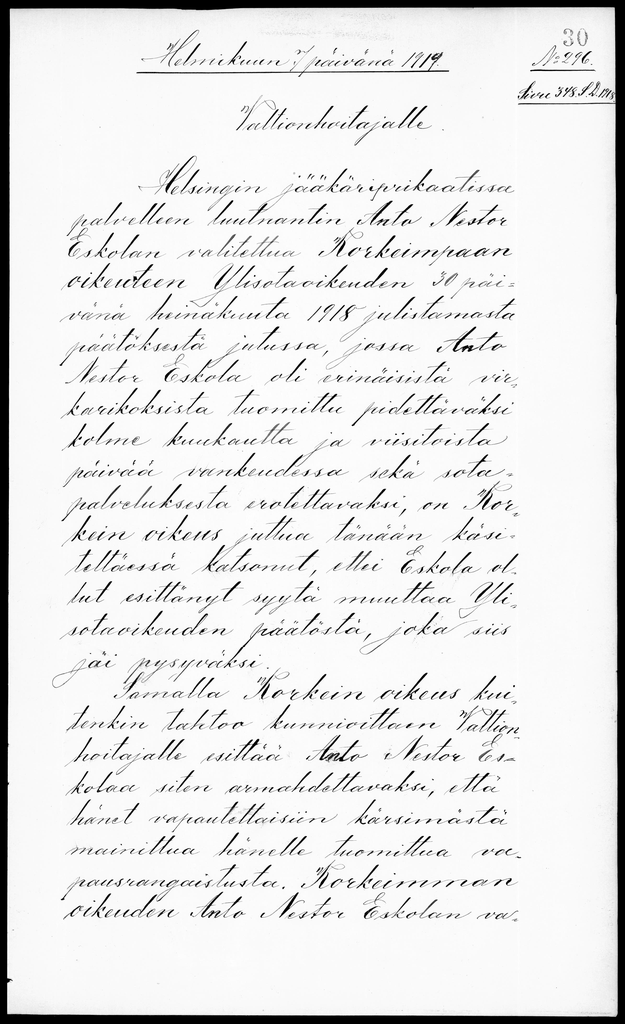 30
Helmikuun 7 päivänä 1919.
No 296.
Sivu 348. S.D. 1918
Valtionhoitajalle.
Helsingin jääkäriprikaatissa
palvelleen luutnantin Anto Nestor
Eskolan valitettua Korkeimpaan
oikeuteen Ylisotaoikeuden 30 päi-
vänä heinäkuuta 1918 julistamasta
päätöksestä jutussa, jossa Anto
Nestor Eskola oli erinäisistä vir-
karikoksista tuomittu pidettäväksi
kolme kuukautta ja viisitoista
päivää vankeudessa sekä sota-
palveluksesta erotettavaksi, on Kor-
kein oikeus juttua tänään käsi-
teltäessä katsonut, ettei Eskola ol-
lut esittänyt syytä muuttaa Yli-
sotaoikeuden päätöstä, joka siis
jäi pysyväksi.
Samalla Korkein oikeus kui-
tenkin tahtoo kunnioittaen Valtion-
hoitajalle esittää Anto Nestor Es-
kolaa siten armahdettavaksi, että
hänet vapautettaisiin kärsimästä
mainittua hänelle tuomittua va-
pausrangaistusta. Korkeimman
oikeuden Anto Nestor Eskolan va-